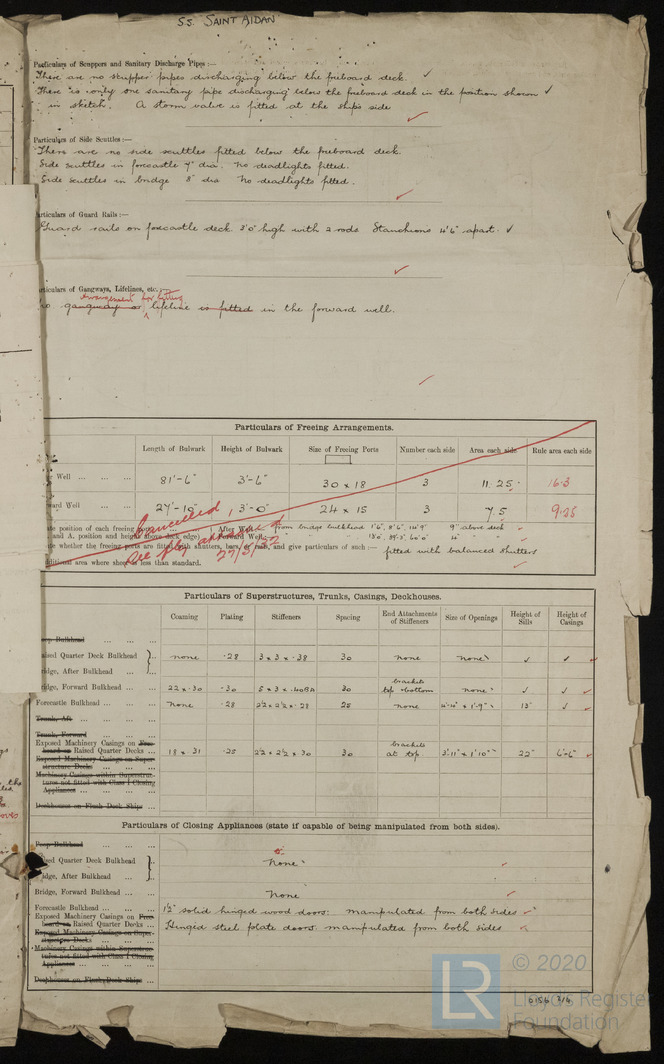 S.S. SAINT AIDAN
Particulars of Scuppers and Sanitary Discharge Pipes :—
There are no scupper pipes discharging below the freeboard deck.
There is only one sanitary pipe discharging below the freeboard deck in the position shown
in sketch. A storm valve is fitted at the ships side
Particulars of Side Scuttles :—
There are no side scuttles fitted below the freeboard deck.
Side scuttles in forecastle 7" dia. No deadlights fitted.
Side scuttles in bridge 8" dia No deadlights fitted.
articulars of Guard Rails :—
Guard rails on forecastle deck. 3'0" high with 2 rods Stanchions 4'6" apart.
articulars of Gangways, Lifelines, etc. :—
arrangement for fitting
no gangway or lifeline is fitted in the forward well.
Particulars of Freeing Arrangements.
Length of Bulwark Height of Bulwark Size of Freeing Ports Number each side Area each side Rule area each side
Well ... 81'-6" 3'-6" 30 × 18 3 11.25 16.3
ward Well ... 27'-10" 3'-0" 24 × 15 3 7.5 9.25
Cancelled
See ply attached
27/5/32
te position of each freeing After Well from bridge bulkhead 9" above deck
and A. position and height above deck edge) Forward Well
te whether the freeing ports are fitted with shutters, bars, or rails, and give particulars of such :— fitted with balanced shutters
ditional area where sheer is less than standard.
Particulars of Superstructures, Trunks, Casings, Deckhouses.
Coaming Plating Stiffeners Spacing End Attachments of Stiffeners Size of Openings Height of Sills Height of Casings
oop Bulkhead ...
aised Quarter Deck Bulkhead none .28 3 × 3 × .38 30 none none
ridge, After Bulkhead ...
ridge, Forward Bulkhead ... 22 × .30 .30 5 × 3 × .40BA 30 brackets top & bottom none
Forecastle Bulkhead ... None .28 2½ × 2½ × .28 25 none 4'-10" × 1'-9" 15"
Trunk, Aft ...
Trunk, Forward ...
Exposed Machinery Casings on Free-
board or Raised Quarter Decks ... 18 × 31 .25 2½ × 2½ × 30 30 brackets at top 3'-11" × 1'10" 22" 6'-6"
Exposed Machinery Casings on Super-
structure Decks ...
Machinery Casings within Superstruc-
tures not fitted with Class 1 Closing
Appliances ...
Deckhouses on Flush Deck Ships ...
Particulars of Closing Appliances (state if capable of being manipulated from both sides).
Poop Bulkhead ...
ised Quarter Deck Bulkhead None
dge, After Bulkhead ...
Bridge, Forward Bulkhead ... None
Forecastle Bulkhead ... 1½" solid hinged wood doors. manipulated from both sides
Exposed Machinery Casings on Free-
board or Raised Quarter Decks ... Hinged steel plate doors. manipulated from both sides
Exposed Machinery Casings on Super-
structure Decks ...
Machinery Casings within Superstruc-
tures not fitted with Class 1 Closing
Appliances ...
Deckhouses on Flush Deck Ships ...
LR © 2020
Lloyd's Register
Foundation